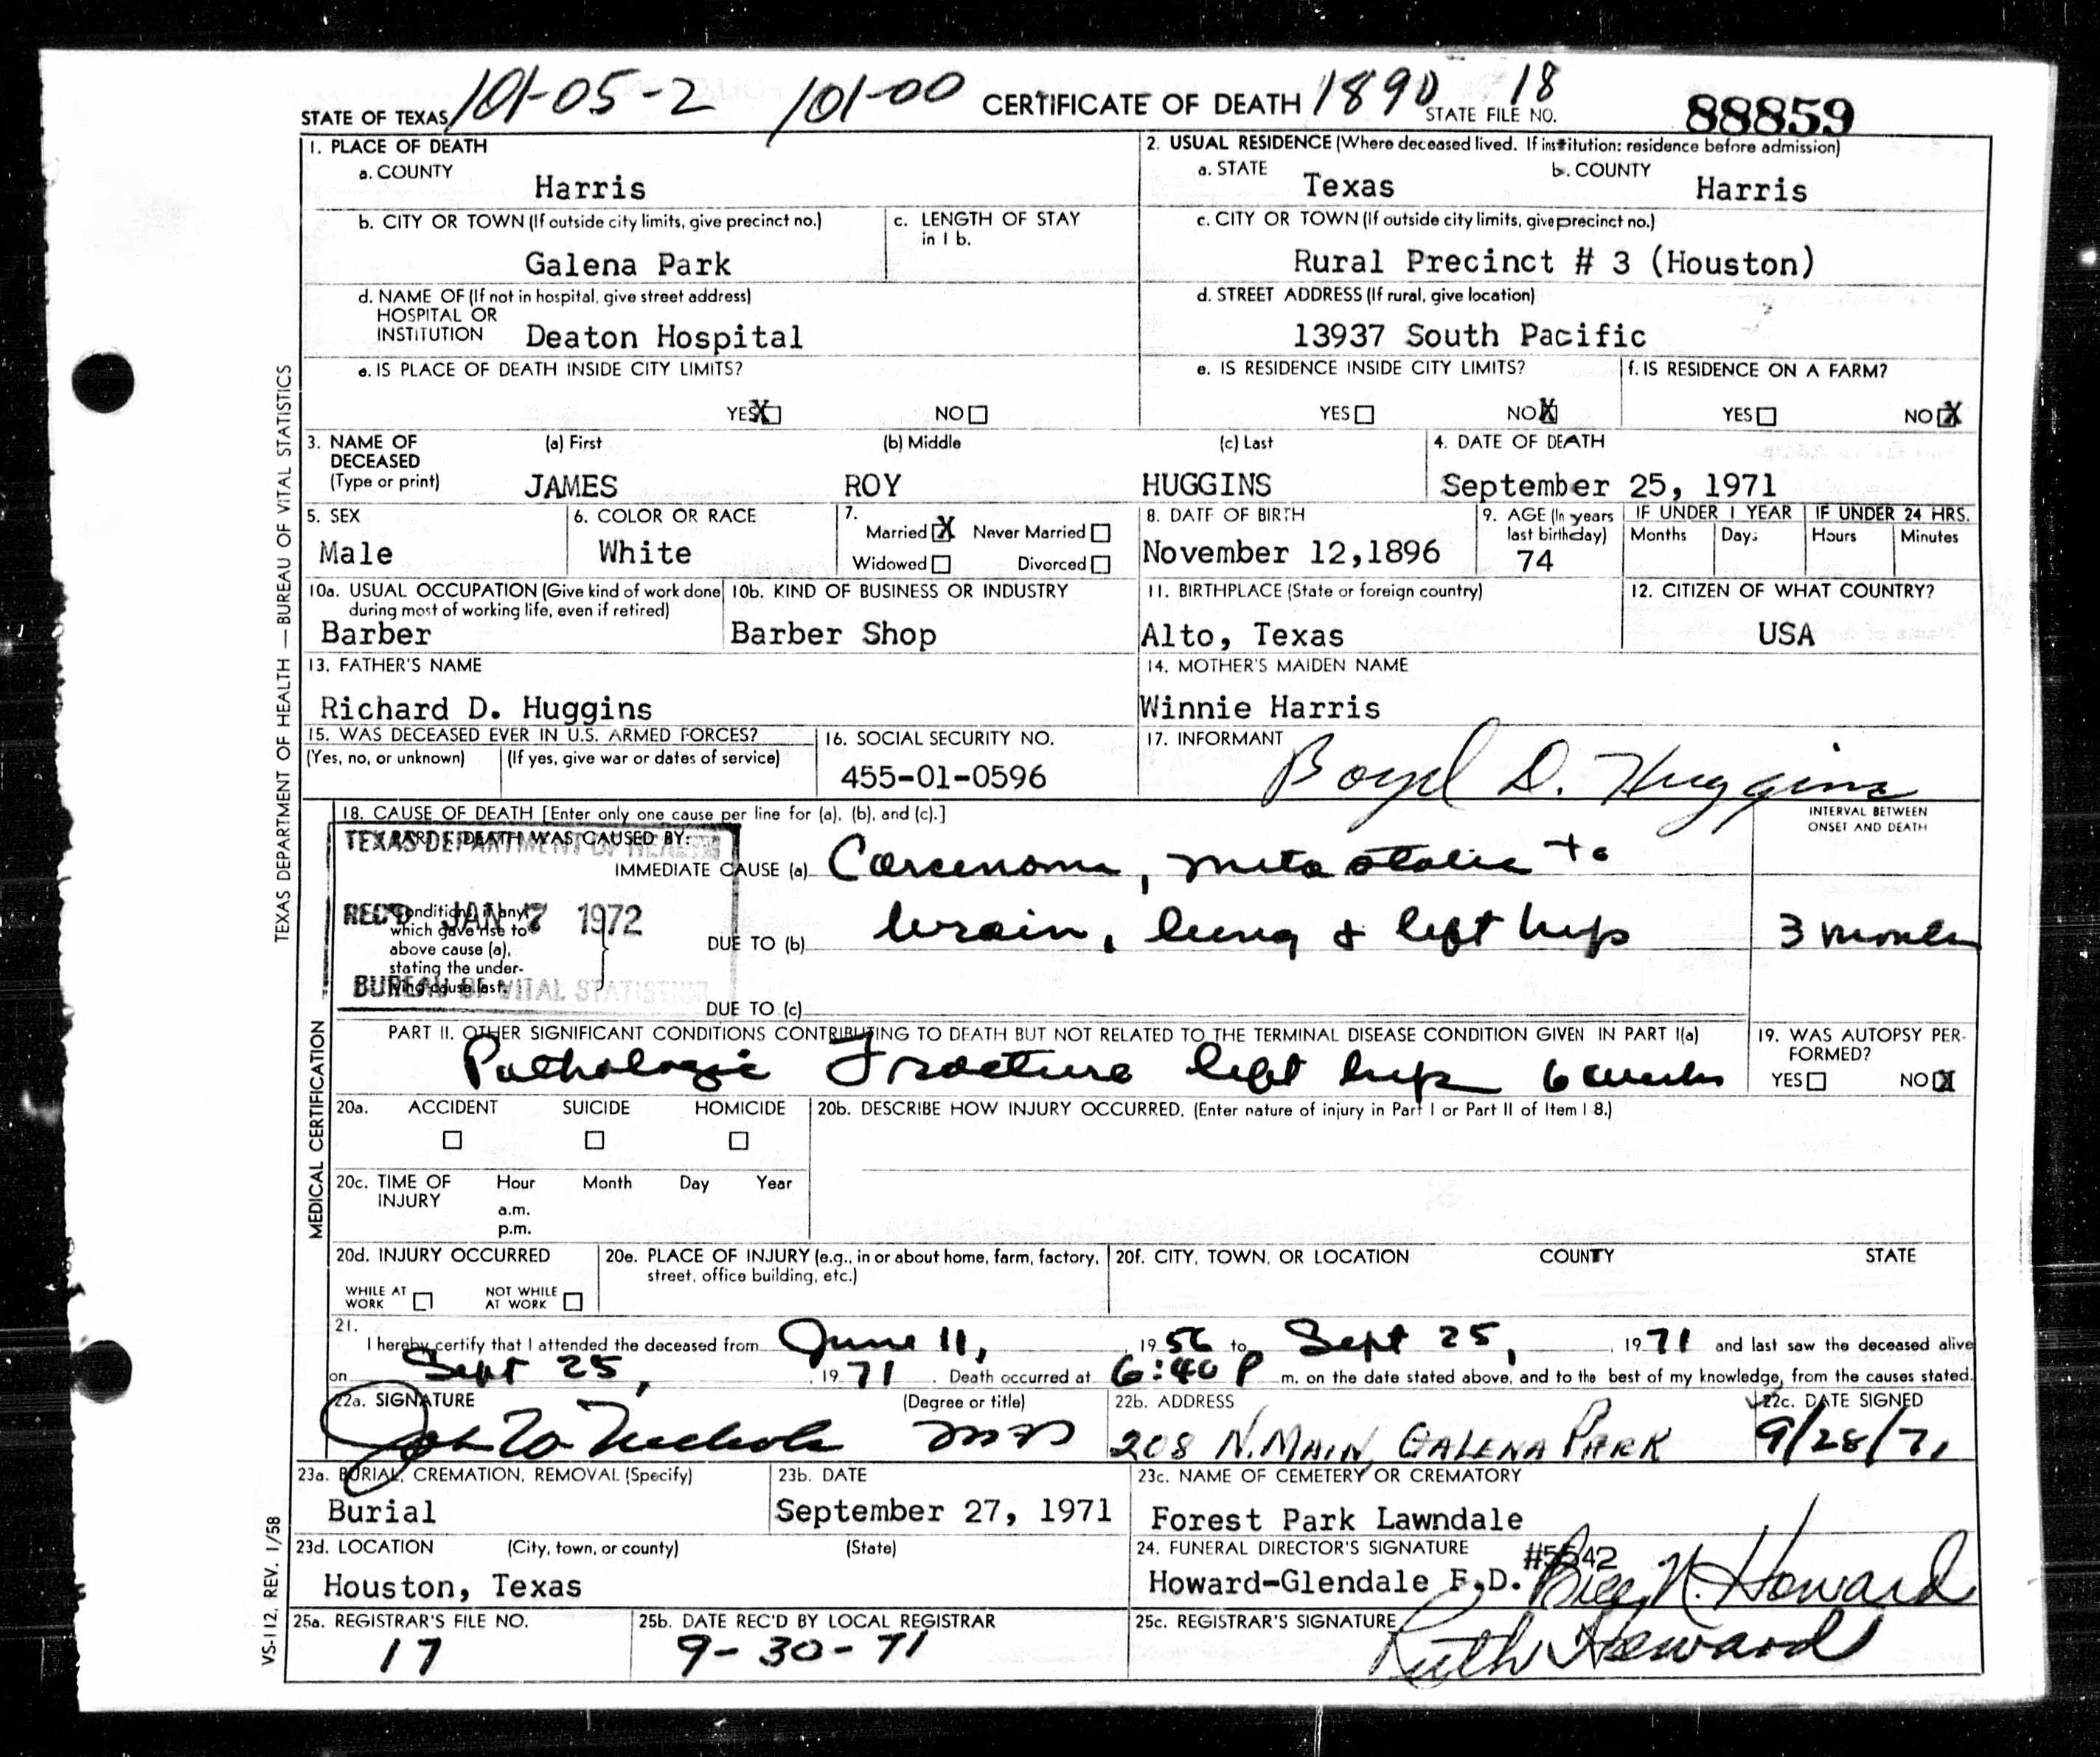 STATE OF TEXAS 101-05-2 101-00 CERTIFICATE OF DEATH 1890 18 STATE FILE NO. 88859
1. PLACE OF DEATH
a. COUNTY Harris
2. USUAL RESIDENCE (Where deceased lived. If institution: residence before admission)
a. STATE Texas b. COUNTY Harris
b. CITY OR TOWN (If outside city limits, give precinct no.) Galena Park
c. LENGTH OF STAY in 1 b.
c. CITY OR TOWN (If outside city limits, give precinct no.)
Rural Precinct # 3 (Houston)
d. NAME OF (If not in hospital, give street address)
HOSPITAL OR
INSTITUTION Deaton Hospital
d. STREET ADDRESS (If rural, give location)
13937 South Pacific
e. IS PLACE OF DEATH INSIDE CITY LIMITS?
YES X NO
e. IS RESIDENCE INSIDE CITY LIMITS?
YES NO X
f. IS RESIDENCE ON A FARM?
YES NO X
3. NAME OF DECEASED (Type or print)
(a) First (b) Middle (c) Last
JAMES ROY HUGGINS
4. DATE OF DEATH
September 25, 1971
5. SEX
Male
6. COLOR OR RACE
White
7.
Married X Never Married
Widowed Divorced
8. DATE OF BIRTH
November 12,1896
9. AGE (In years last birthday)
74
IF UNDER 1 YEAR
Months Days
IF UNDER 24 HRS.
Hours Minutes
10a. USUAL OCCUPATION (Give kind of work done during most of working life, even if retired)
Barber
10b. KIND OF BUSINESS OR INDUSTRY
Barber Shop
11. BIRTHPLACE (State or foreign country)
Alto, Texas
12. CITIZEN OF WHAT COUNTRY?
USA
13. FATHER'S NAME
Richard D. Huggins
14. MOTHER'S MAIDEN NAME
Winnie Harris
15. WAS DECEASED EVER IN U.S. ARMED FORCES?
(Yes, no, or unknown) (If yes, give war or dates of service)
16. SOCIAL SECURITY NO.
455-01-0596
17. INFORMANT Boyd D. Huggins
18. CAUSE OF DEATH [Enter only one cause per line for (a), (b), and (c).]
INTERVAL BETWEEN
ONSET AND DEATH
PART I. DEATH WAS CAUSED BY:
TEXAS DEPARTMENT OF HEALTH
REC'D JAN 7 1972
BUREAU OF VITAL STATISTICS
IMMEDIATE CAUSE (a) Carcenoma, metastatic to
Conditions, if any,
which gave rise to
above cause (a),
stating the under-
lying cause last.
DUE TO (b) brain, lung & left hip 3 months
DUE TO (c)
PART II. OTHER SIGNIFICANT CONDITIONS CONTRIBUTING TO DEATH BUT NOT RELATED TO THE TERMINAL DISEASE CONDITION GIVEN IN PART I(a)
Pathologic Fracture left hip 6 weeks
19. WAS AUTOPSY PER-
FORMED?
YES NO X
20a. ACCIDENT SUICIDE HOMICIDE
20b. DESCRIBE HOW INJURY OCCURRED. (Enter nature of injury in Part I or Part II of Item 18.)
20c. TIME OF INJURY
Hour Month Day Year
a.m.
p.m.
20d. INJURY OCCURRED
WHILE AT WORK NOT WHILE AT WORK
20e. PLACE OF INJURY (e.g., in or about home, farm, factory, street, office building, etc.)
20f. CITY, TOWN, OR LOCATION COUNTY STATE
21.
I hereby certify that I attended the deceased from June 11, 1956 to Sept 25, 1971 and last saw the deceased alive
on Sept 25, 1971. Death occurred at 6:40 P m. on the date stated above, and to the best of my knowledge, from the causes stated.
22a. SIGNATURE (Degree or title)
John W Nichols MD
22b. ADDRESS
208 N. MAIN, GALENA PARK
22c. DATE SIGNED
9/28/71
23a. BURIAL, CREMATION, REMOVAL (Specify)
Burial
23b. DATE
September 27, 1971
23c. NAME OF CEMETERY OR CREMATORY
Forest Park Lawndale
23d. LOCATION (City, town, or county) (State)
Houston, Texas
24. FUNERAL DIRECTOR'S SIGNATURE #5542
Howard-Glendale F.D. Billy N. Howard
25a. REGISTRAR'S FILE NO.
17
25b. DATE REC'D BY LOCAL REGISTRAR
9-30-71
25c. REGISTRAR'S SIGNATURE
Ruth Howard
TEXAS DEPARTMENT OF HEALTH — BUREAU OF VITAL STATISTICS
MEDICAL CERTIFICATION
VS-112, REV. 1/58